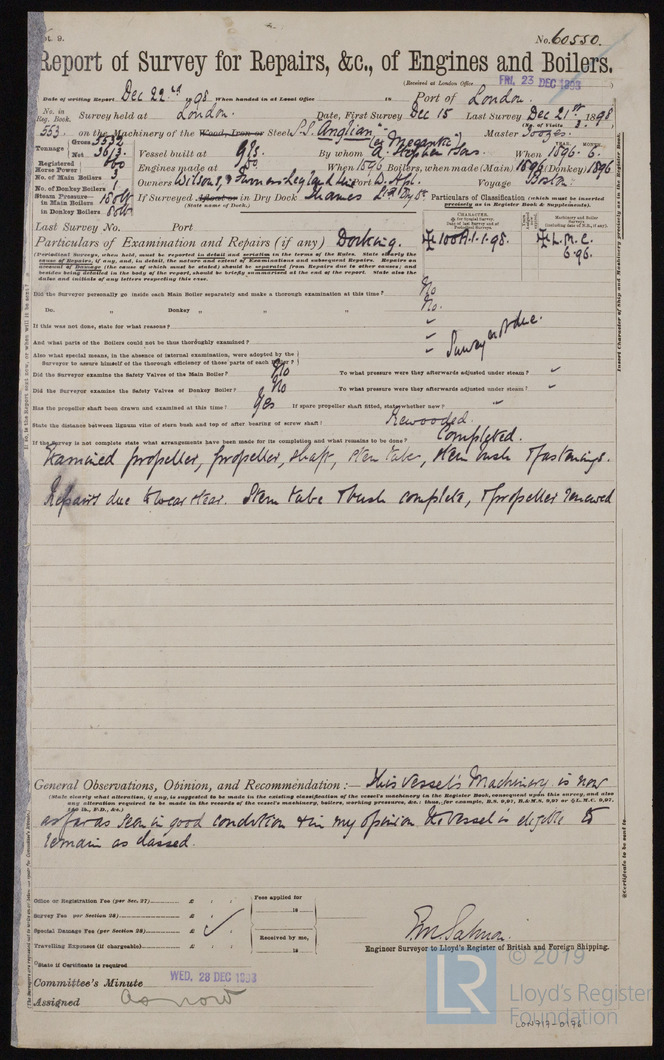 No. 60550.
Report of Survey for Repairs, &c., of Engines and Boilers.
(Received at London Office FRI. 23 DEC 1898)
Date of writing Report Dec 22nd 1898. When handed in at Local Office 18 Port of London.
No. in Reg. Book. Survey held at London. Date, First Survey Dec 15 Last Survey Dec 21st 1898
(No. of Visits 3.)
553. on the Machinery of the Wood, Iron or Steel S.S. "Anglian" (ex Megantic) Master
Tonnage Gross 5532 Net 3613.
Vessel built at Gls. By whom A. Stephen & Sons. When 1896. 6.
Registered Horse Power 600 Engines made at Do When 1896 Boilers, when made (Main) 1896 (Donkey) 1896
No. of Main Boilers 3
No. of Donkey Boilers 1
Owners Wilsons & Furness Leyland Line Port L'pl. Voyage Boston.
Steam Pressure in Main Boilers 180 lb
in Donkey Boilers 80 lb
If Surveyed Afloat or in Dry Dock Thames
(State name of Dock.)
Particulars of Classification (which must be inserted precisely as in Register Book & Supplements).
Last Survey No. Port
Particulars of Examination and Repairs (if any) Docking.
✠100A.1.1.98. ✠L.M.C. 6.96.
(Periodical Surveys, when held, must be reported in detail and seriatim in the terms of the Rules. State clearly the
cause of Repairs, if any, and, in detail, the nature and extent of Examinations and subsequent Repairs. Repairs on
account of Damage (the cause of which must be stated) should be separated from Repairs due to other causes; and
besides being detailed in the body of the report, should be briefly summarised at the end of the report. State also the
dates and initials of any letters respecting this case.
Did the Surveyor personally go inside each Main Boiler separately and make a thorough examination at this time? No
Do. " Donkey " " " No.
If this was not done, state for what reasons? "
And what parts of the Boilers could not be thus thoroughly examined? " Survey not due.
Also what special means, in the absence of internal examination, were adopted by the
Surveyor to assure himself of the thorough efficiency of those parts of each Boiler? "
Did the Surveyor examine the Safety Valves of the Main Boiler? No To what pressure were they afterwards adjusted under steam? "
Did the Surveyor examine the Safety Valves of Donkey Boiler? No To what pressure were they afterwards adjusted under steam? "
Has the propeller shaft been drawn and examined at this time? Yes If spare propeller shaft fitted, state whether new? "
State the distance between lignum vitæ of stern bush and top of after bearing of screw shaft? Rewooded.
If the Survey is not complete state what arrangements have been made for its completion and what remains to be done? Completed.
Examined propeller, propeller shaft, stern tube, stern bush & fastenings.
Repairs due to wear & tear. Stern tube & bush complete, & propeller renewed
General Observations, Opinion, and Recommendation:— This Vessel's Machinery is now
(State clearly what alteration, if any, is suggested to be made in the existing classification of the vessel's machinery in the Register Book, consequent upon this survey, and also
any alteration required to be made in the records of the vessel's machinery, boilers, working pressures, &c.: thus, for example, B.S. 9,97, B.&M.S. 9,97 or ✠L.M.C. 9,97,
140 lb., F.D., &c.)
as far as seen in good condition & in my opinion the vessel is eligible to
remain as classed.
Office or Registration Fee (per Sec. 27) £ : : Fees applied for
Survey Fee per Section 28) £ : : 18
Special Damage Fee (per Section 28) £ : : Received by me,
Travelling Expenses (if chargeable) £ : : 18
State if Certificate is required
Engineer Surveyor to Lloyd's Register of British and Foreign Shipping.
Committee's Minute WED. 28 DEC 1898
Assigned as now
© 2019
LR
Lloyd's Register
Foundation
LON717-0196